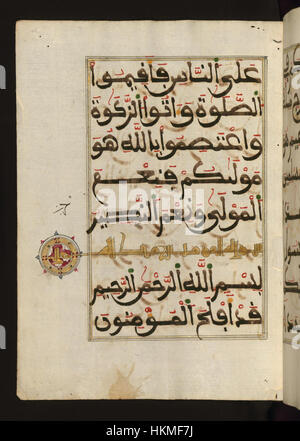 على الناس فأقيموا
الصلوة وءاتوا الزكوة
واعتصموا بالله هو
موليكم فنعم
المولى ونعم النصير
بسم الله الرحمن الرحيم
قد أفلح المؤمنون